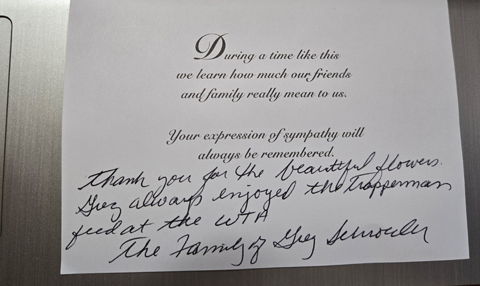 During a time like this
we learn how much our friends
and family really mean to us.
Your expression of sympathy will
always be remembered.
thank you for the beautiful flowers.
Greg always enjoyed the trapperman
feed at the WTA
The Family of Greg Schroeder